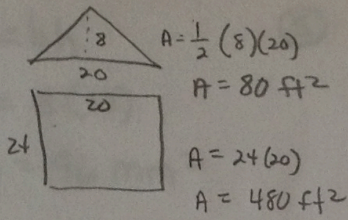 8
20
A = 1/2 (8)(20)
A = 80 ft²
20
24
A = 24(20)
A = 480 ft²